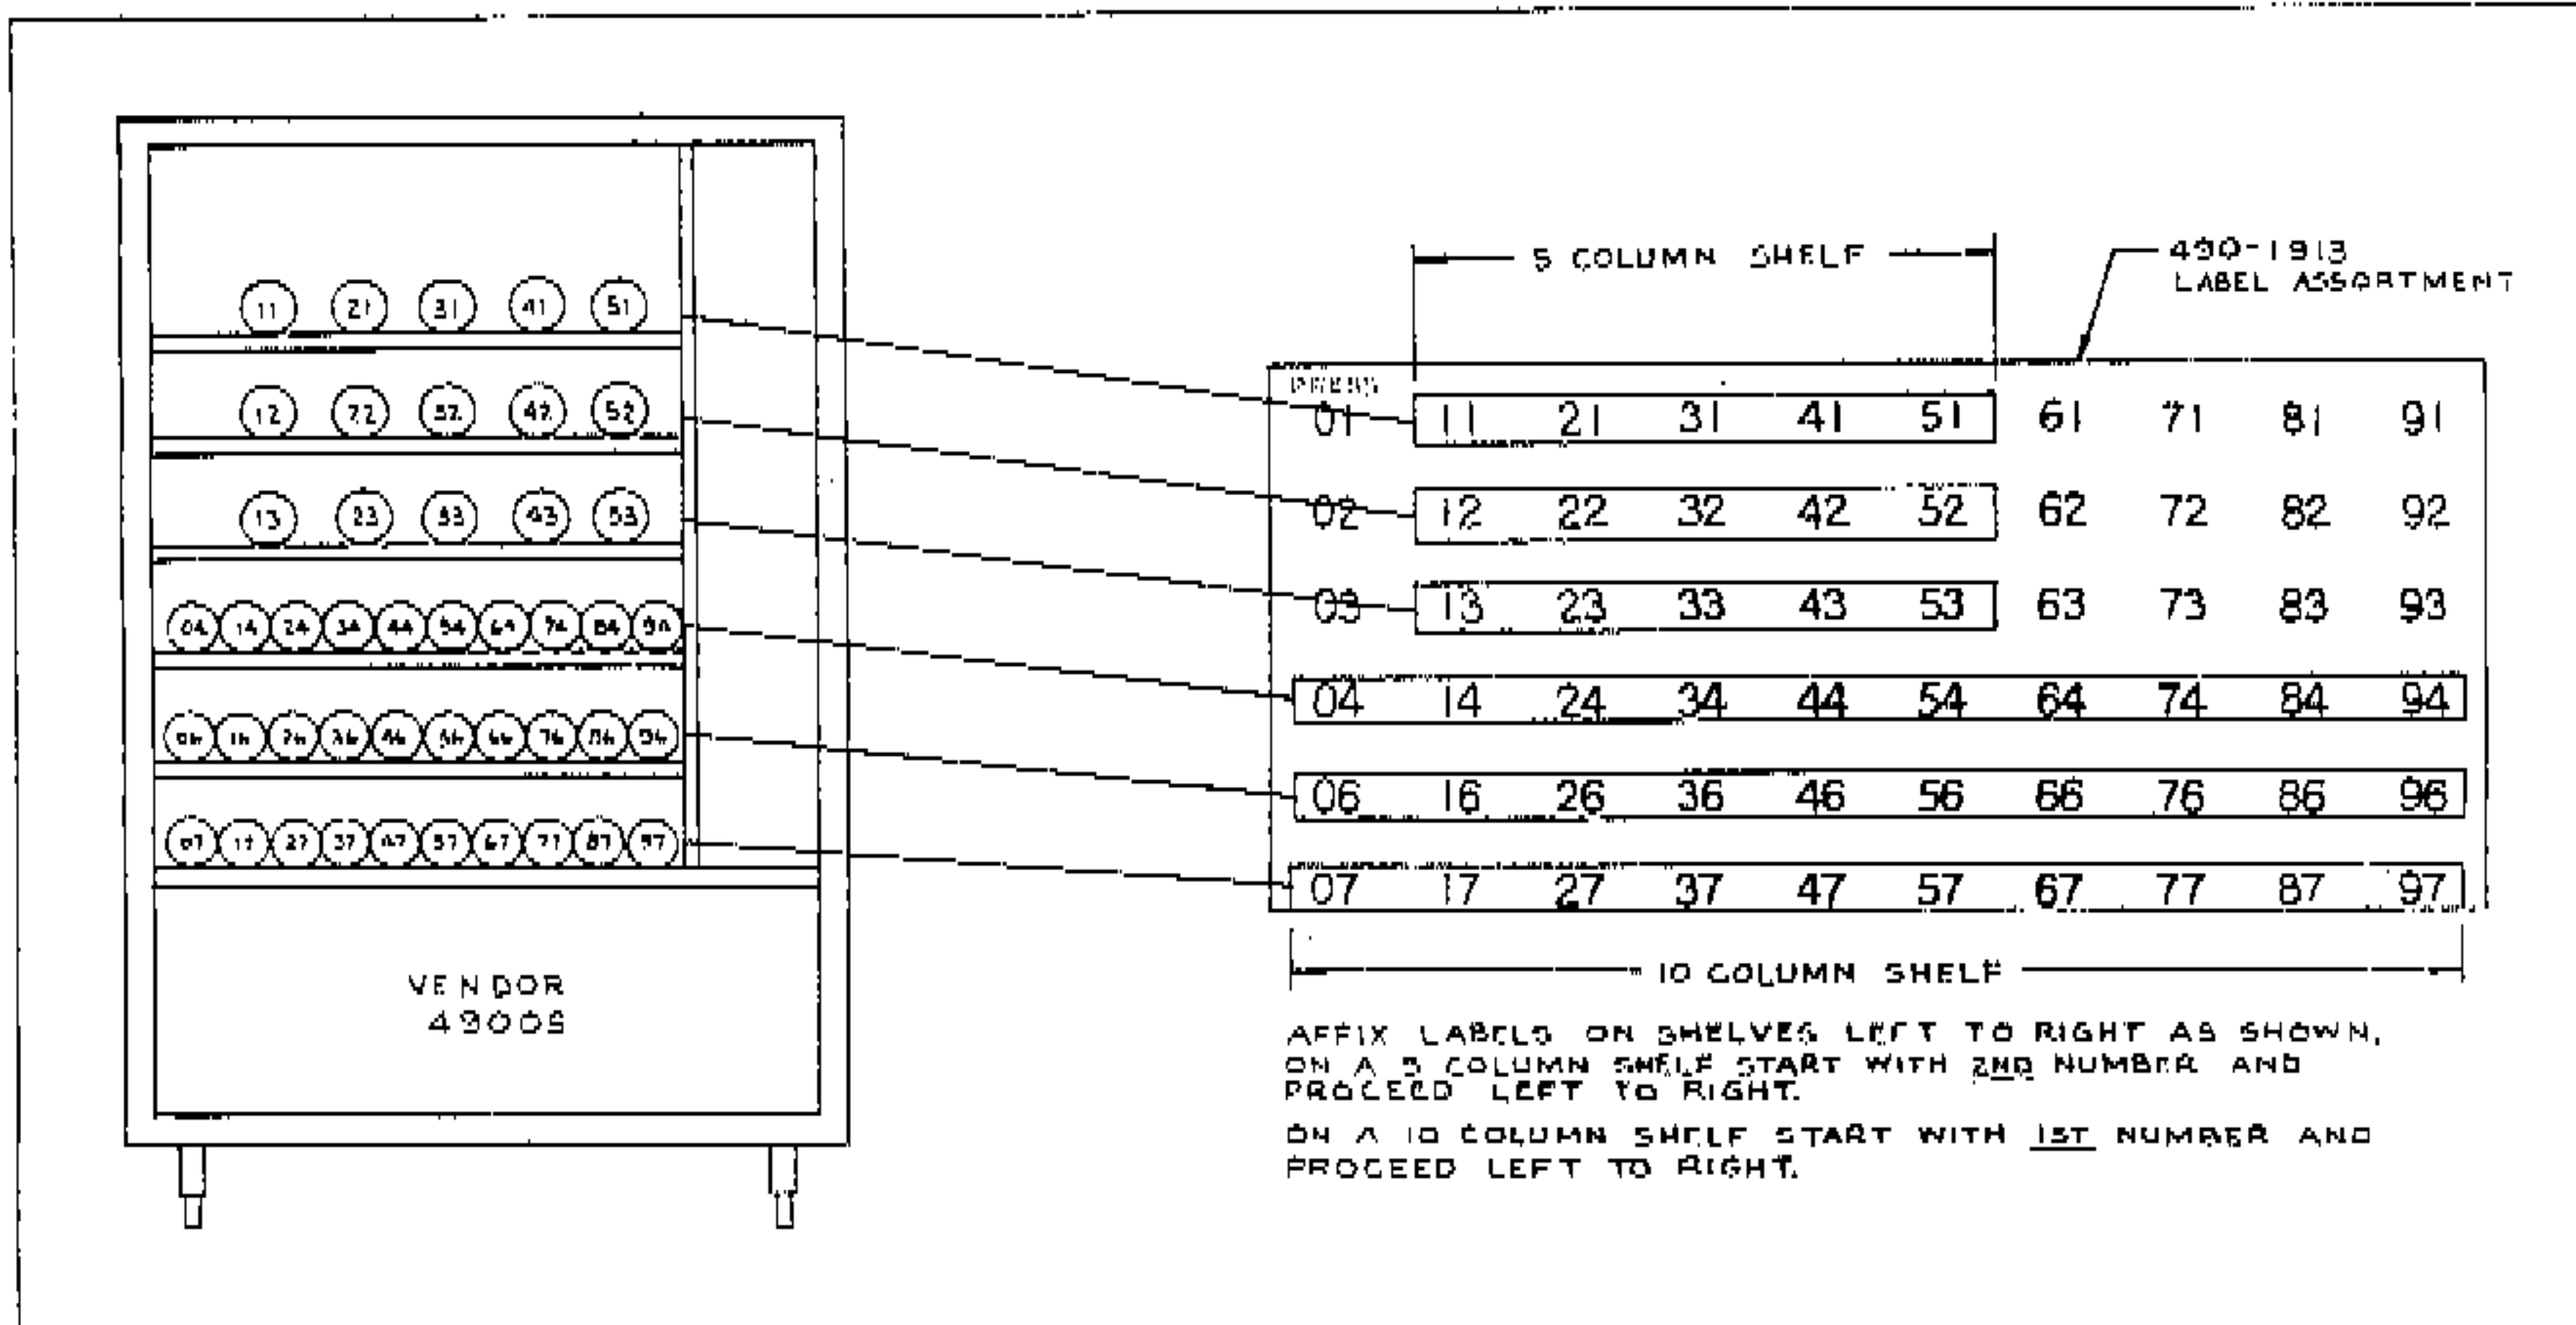 5 COLUMN SHELF
490-1913
LABEL ASSORTMENT
11 21 31 41 51
12 22 32 42 52
13 23 33 43 53
04 14 24 34 44 54 64 74 84 94
06 16 26 36 46 56 66 76 86 96
07 17 27 37 47 57 67 77 87 97
VENDOR
4900S
01 11 21 31 41 51 61 71 81 91
02 12 22 32 42 52 62 72 82 92
03 13 23 33 43 53 63 73 83 93
04 14 24 34 44 54 64 74 84 94
06 16 26 36 46 56 66 76 86 96
07 17 27 37 47 57 67 77 87 97
10 COLUMN SHELF
AFFIX LABELS ON SHELVES LEFT TO RIGHT AS SHOWN.
ON A 5 COLUMN SHELF START WITH 2ND NUMBER AND
PROCEED LEFT TO RIGHT.
ON A 10 COLUMN SHELF START WITH 1ST NUMBER AND
PROCEED LEFT TO RIGHT.